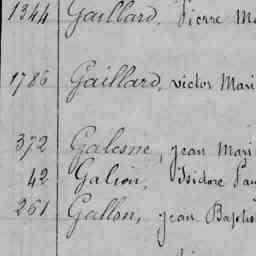 1344 Gaillard, Pierre Ma
1786 Gaillard, victor Mari
372 Galesne, jean Mari
42 Galion, Isidore Pau
261 Gallon, jean Baptis